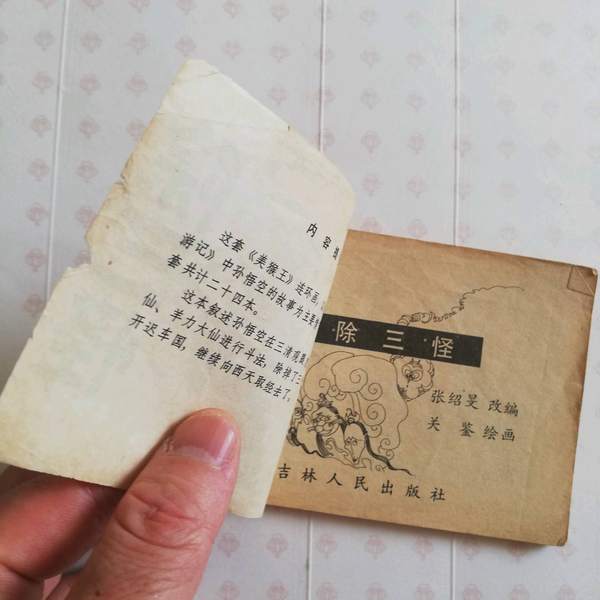 内容
这套《美猴王》连环画,
游记》中孙悟空的故事为主要
套共计二十四本。
这本叙述孙悟空在三清
仙、羊力大仙进行斗法,除掉了三
开迟车国,继续向西天取经去了。
除三怪
张绍旻 改编
关 鉴 绘画
吉林人民出版社